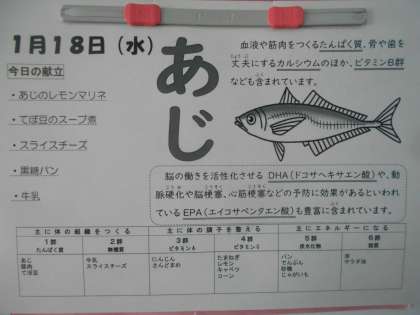 1月18日(水)
今日の献立
・あじのレモンマリネ
・てぼ豆のスープ煮
・スライスチーズ
・黒糖パン
・牛乳
あじ
血液や筋肉をつくるたんぱく質、骨や歯を
丈夫にするカルシウムのほか、ビタミンB群
なども含まれています。
脳の働きを活性化させる DHA(ドコサヘキサエン酸)や、動
脈硬化や脳梗塞、心筋梗塞などの予防に効果があるといわれ
ているEPA(エイコサペンタエン酸)も豊富に含まれています。
主に体の組織をつくる 主に体の調子を整える 主にエネルギーになる
1群 2群 3群 4群 5群 6群
たんぱく質 無機質 ビタミンA ビタミンC 炭水化物 脂質
あじ 牛乳 にんじん たまねぎ パン 油
豚肉 スライスチーズ さんどまめ レモン でんぷん サラダ油
てぼ豆 キャベツ 砂糖
コーン じゃがいも